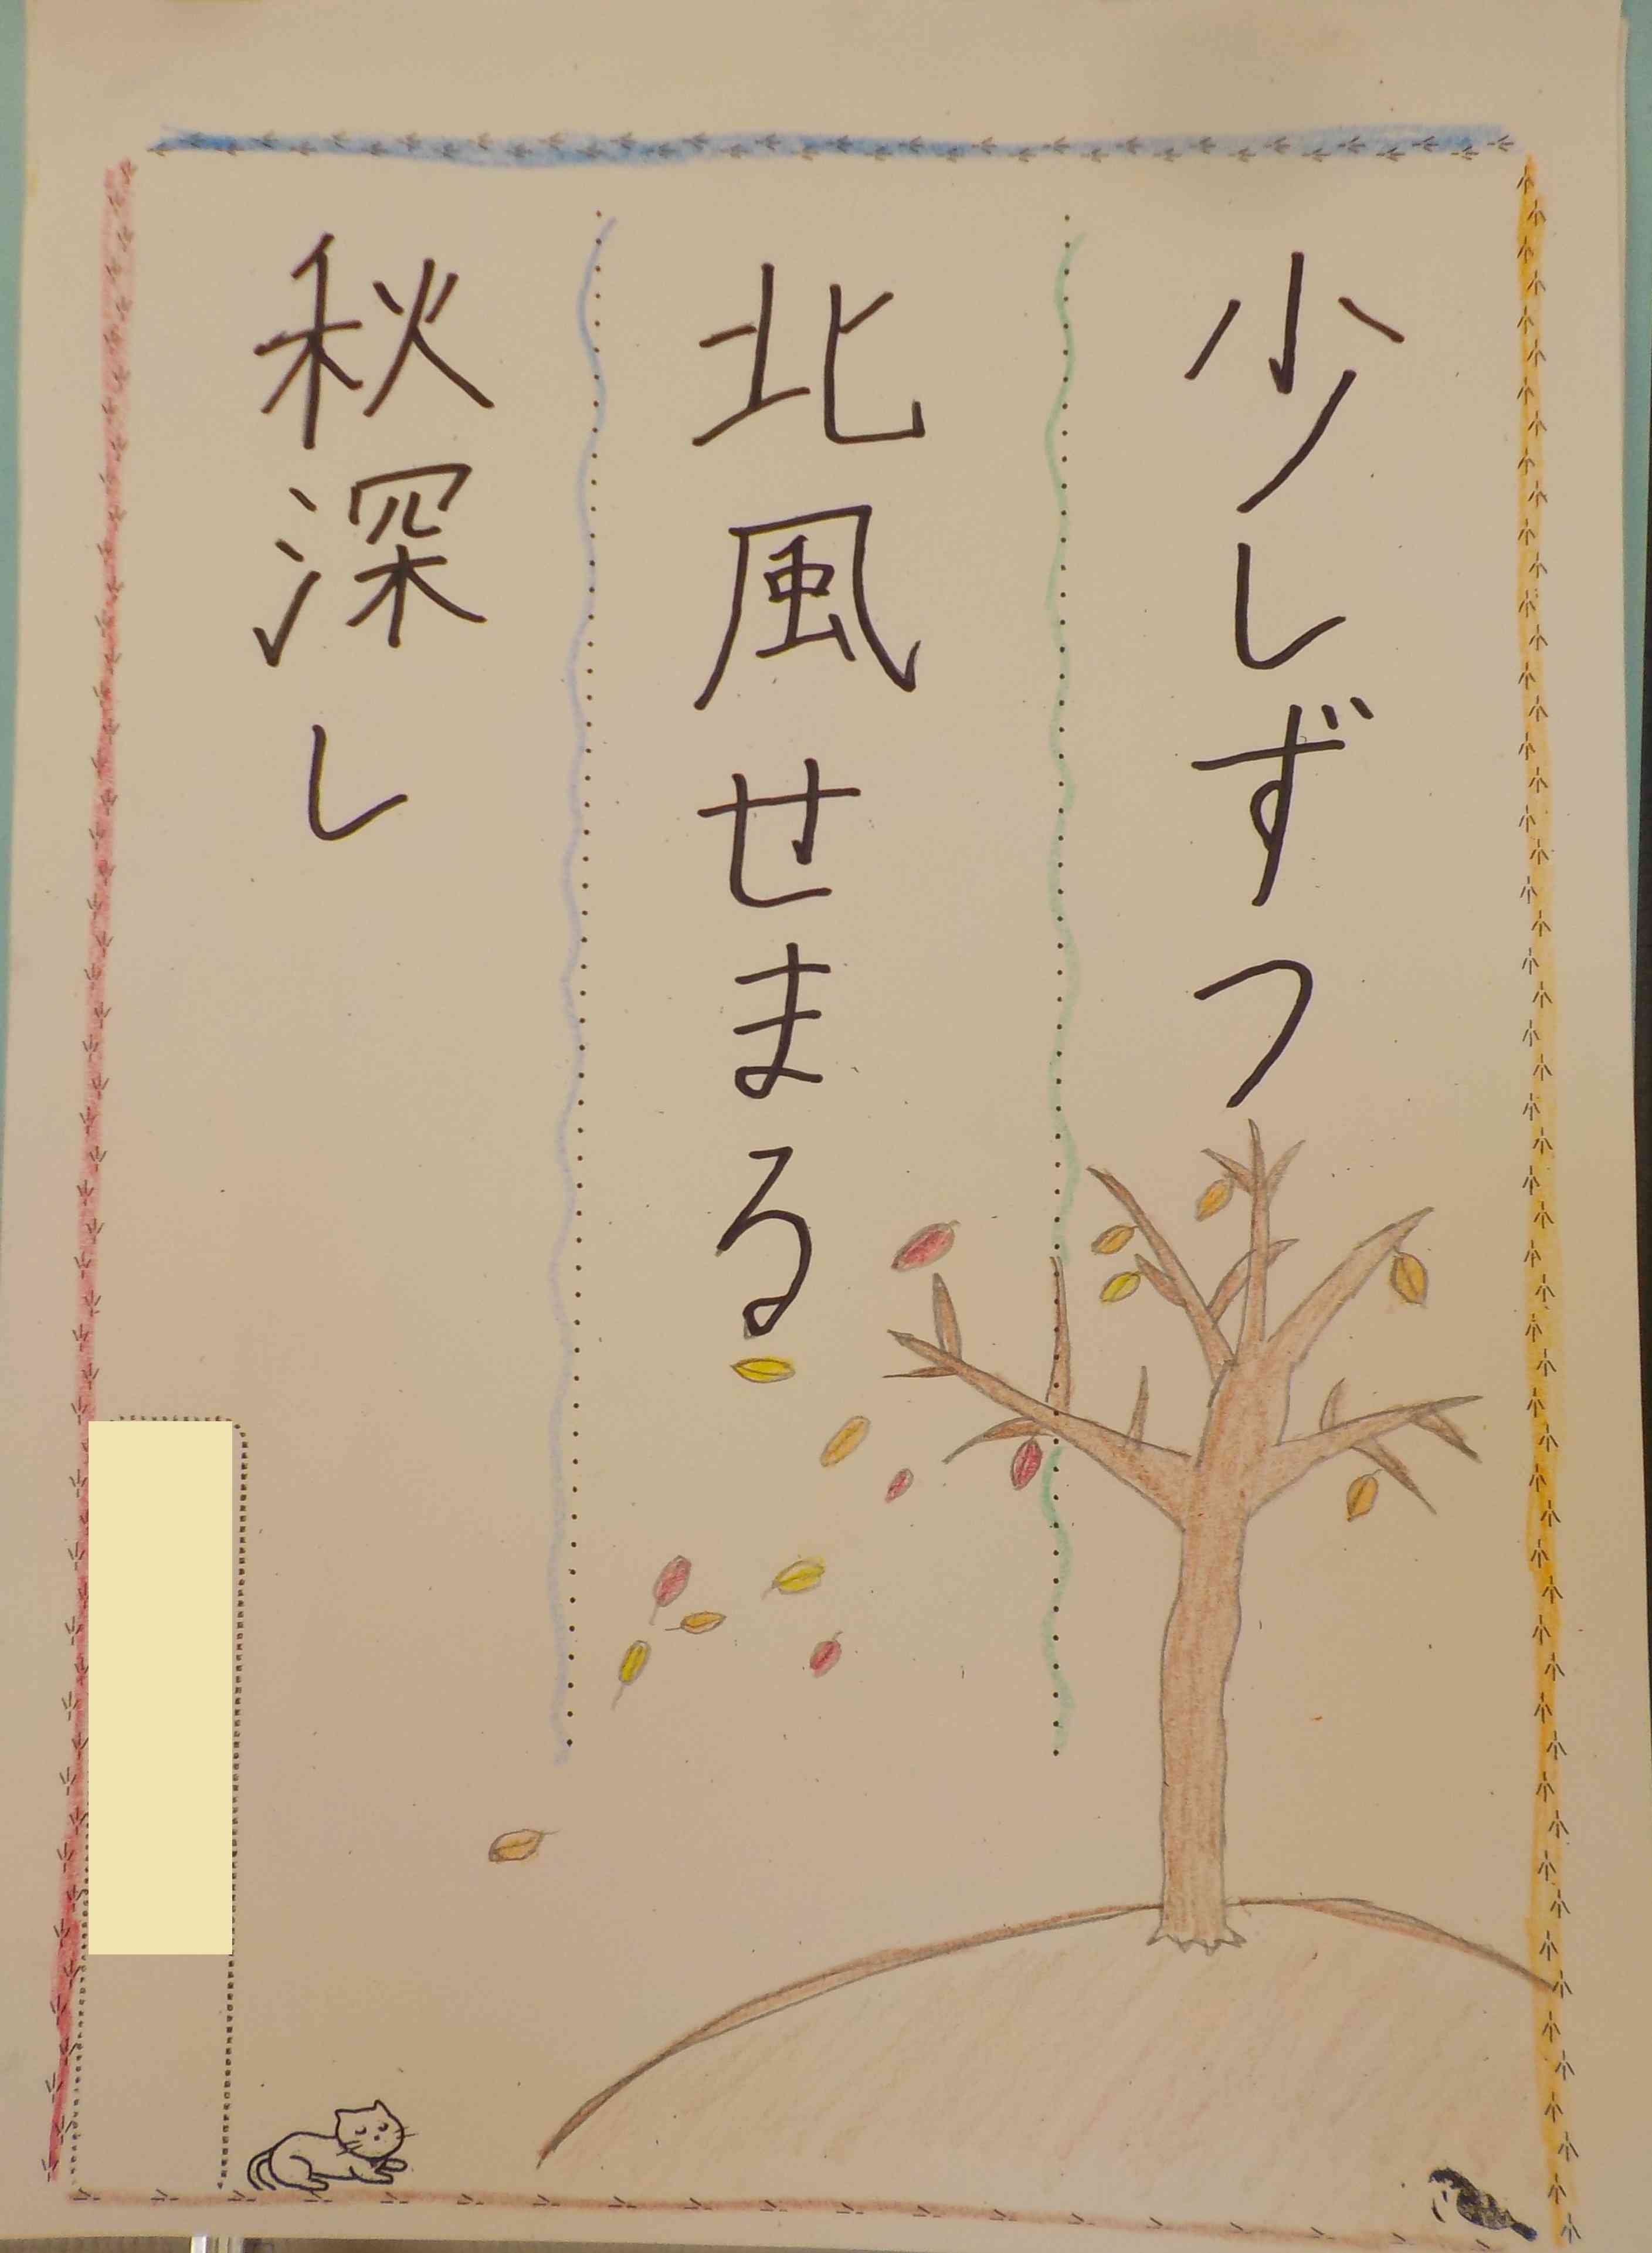 少しずつ
北風せまる
秋深し